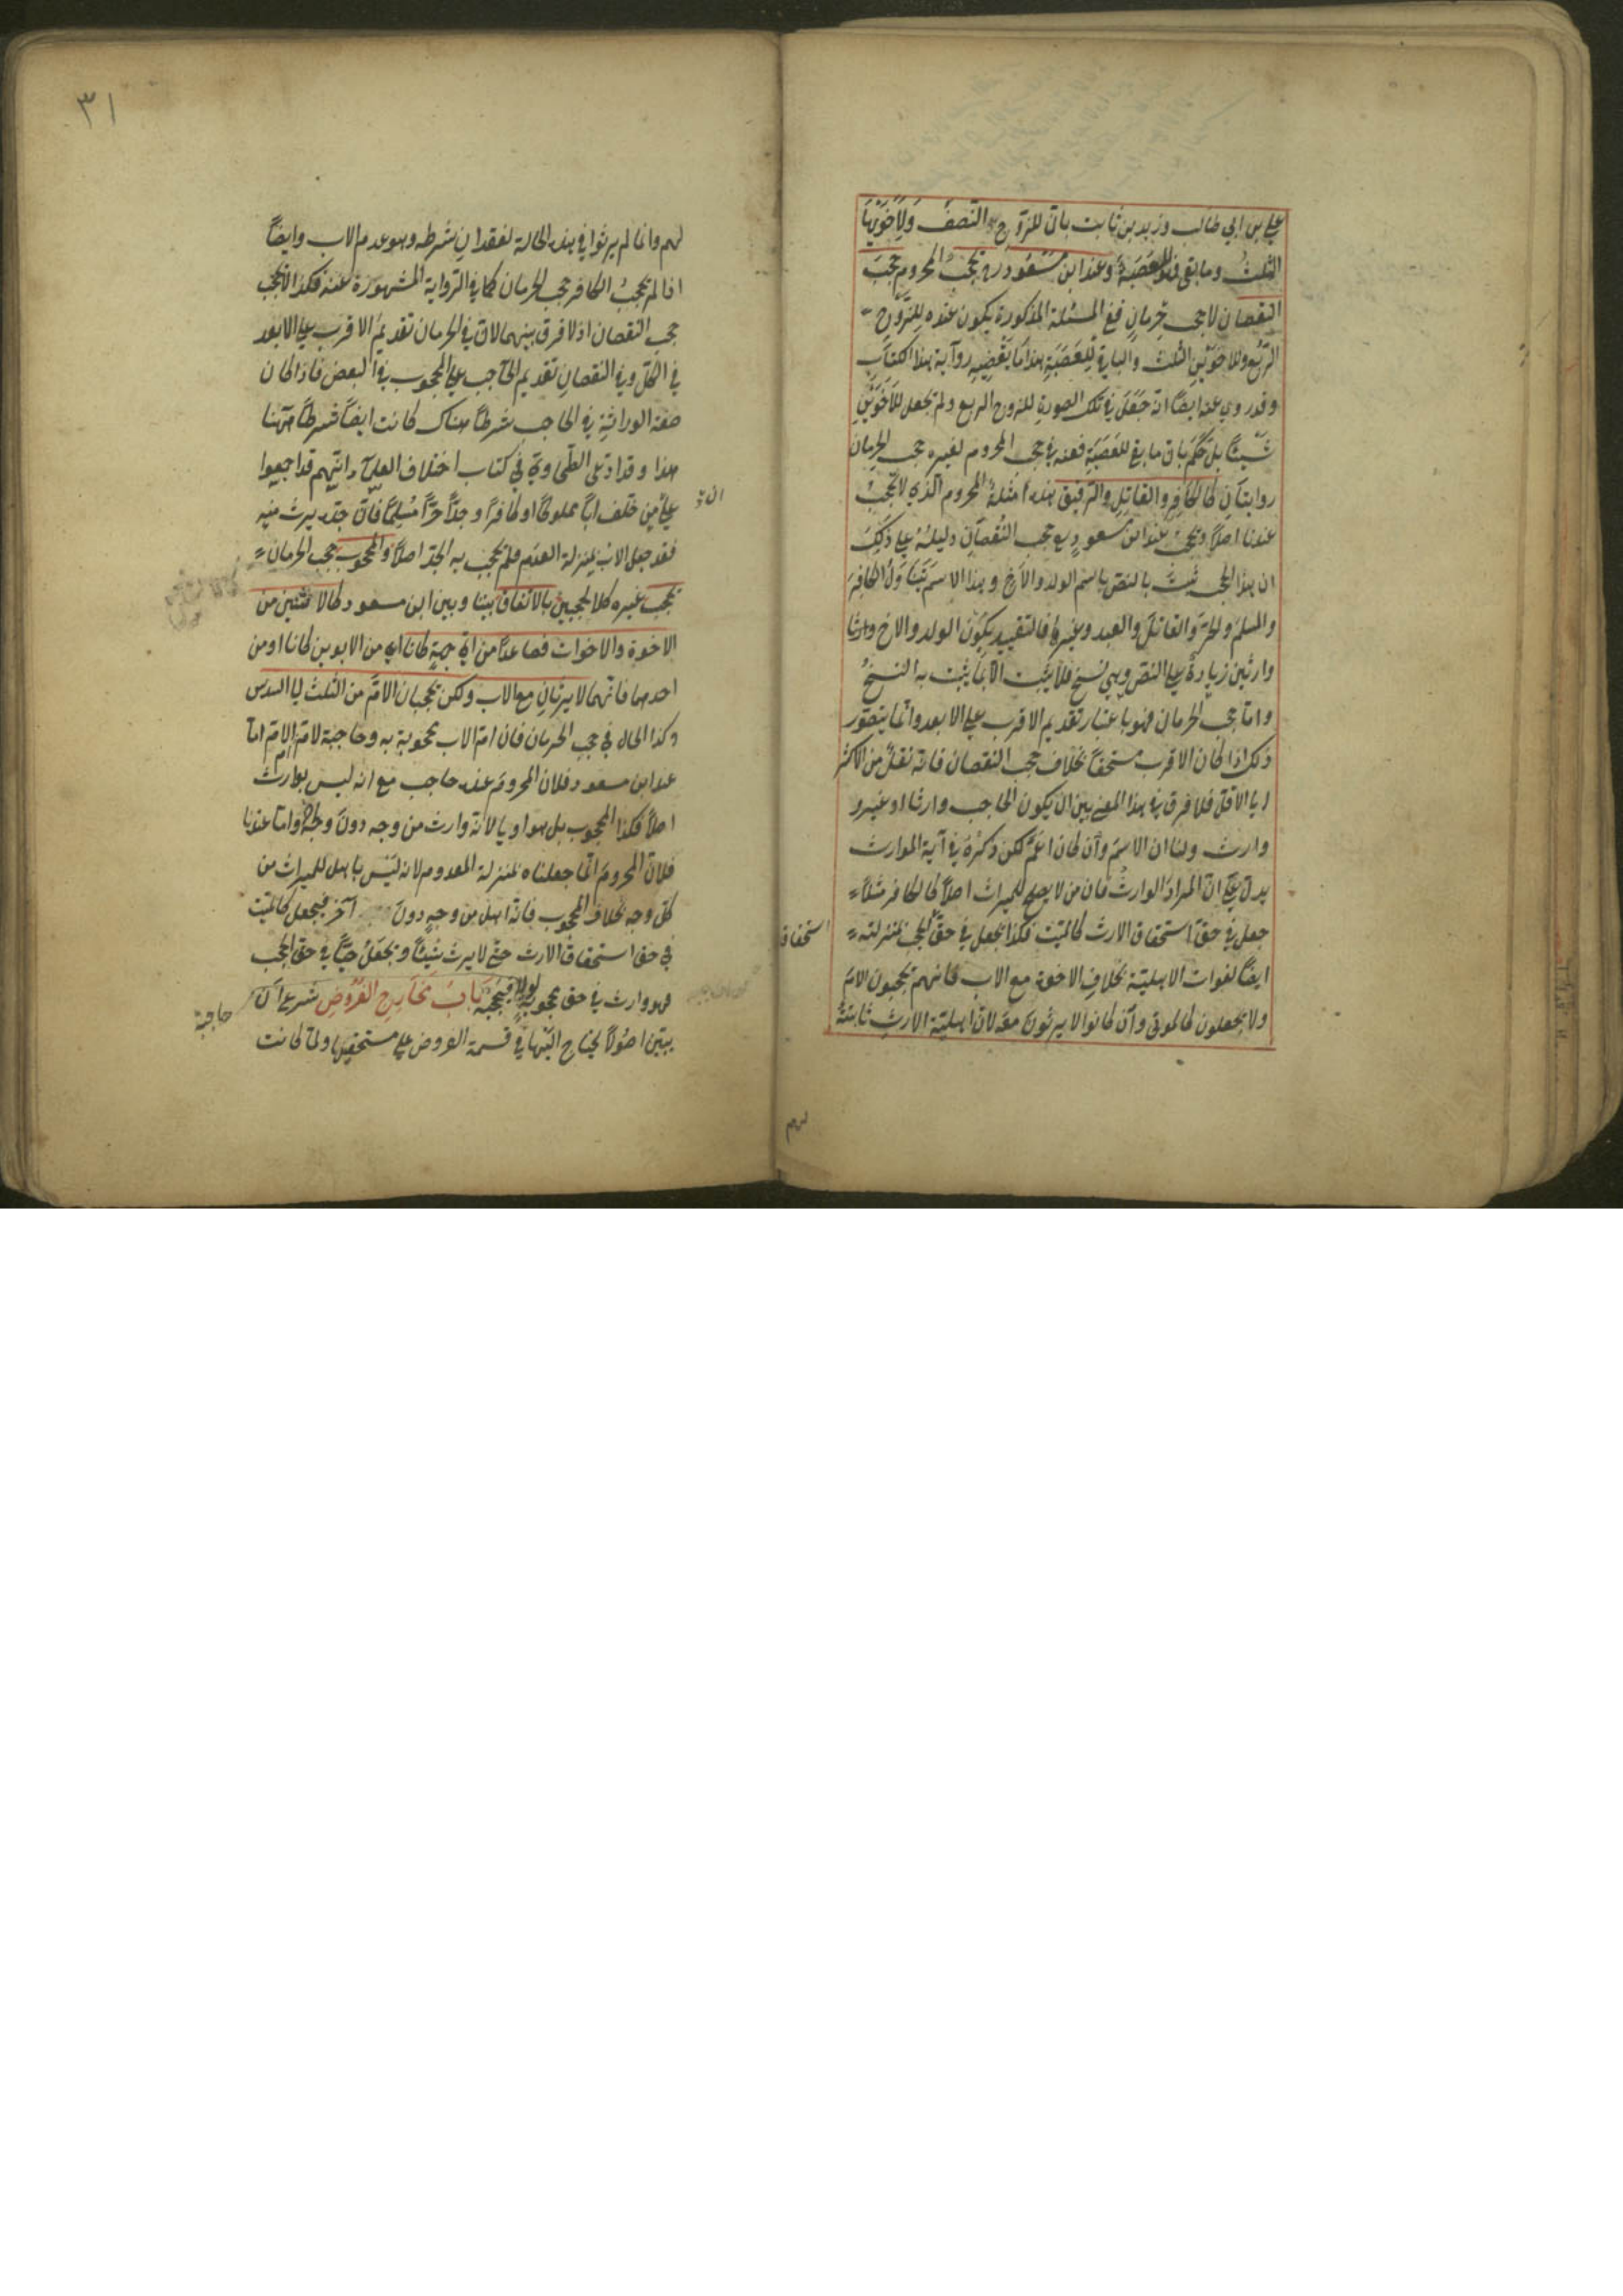 علي بن ابي طالب وزيد بن ثابت بان للزوج النصف ولاخويها
الثلث وما بقى فللعصبة وعند ابن مسعود رضه يحجب المحروم حجب
النقصان لا حجب حرمان ففي المسئلة المذكورة يكون عنده للزوج
الربع وللاخوين الثلث والباقي للعصبة هذا ما يقتضيه رواية هذا الكتاب
وقد روي عنه ايضا انه جعل في تلك الصورة للزوج الربع ولم يجعل للاخوين
شيئا بل حكم بان ما بقي للعصبة فعنه في حجب المحروم لغيره حجب الحرمان
روايتان كالكافر والقاتل والرقيق هذه امثلة المحروم الذي لا يحجب
عندنا اصلا ويحجب عند ابن مسعود رضع حجب النقصان دليله على ذلك
ان هذا الحجب ثبت بالنص باسم الولد والاخ وهذا الاسم يتناول الكافر
والمسلم والحر والقاتل والعبد وغيرها فالتقييد بكون الولد والاخ وارثا
وارثين زيادة على النص وهي نسخ فلا يثبت الا بما يثبت به النسخ
واما حجب الحرمان فهو باعتبار تقديم الاقرب على الابعد وانما يتصور
ذلك اذا كان الاقرب مستحقا بخلاف حجب النقصان فانه نقل من الاكثر
الى الاقل فلا فرق في هذا المعنى بين ان يكون الحاجب وارثا او غير
وارث ولنا ان الاسم وان كان اعم لكن ذكره في آية المواريث
يدل على ان المراد الوارث فان من لا يصلح للميراث اصلا كالكافر مثلا
جعل في حق استحقاق الارث كالميت فكذا يجعل في حق الحجب بمنزلته
استحقاق
ايضا لفوات الاهلية بخلاف الاخوة مع الاب فانهم يحجبون الام
ولا يجعلون كالموتى وان كانوا لا يرثون معه لان اهلية الارث ثابتة
لهم
٣١
لهم وانما لم يرثوا في هذه الحالة لفقدان شرطه وهو عدم الاب وايضا
اذا لم يحجب الكافر حجب الحرمان كما في الرواية المشهورة عنه فكذا لا يحجب
حجب النقصان اذ لا فرق بينهما لان في الحرمان تقديم الاقرب على الابعد
في الكل وفي النقصان تقديم الحاجب على المحجوب في البعض فاذا كان
صفة الوراثة في الحاجب شرطا هناك كانت ايضا شرطا ههنا
هذا وقد ادعى الطحاوي في كتاب اختلاف العلماء انهم قد اجمعوا
على من خلف ابا مملوكا او كافرا وجدا حرا مسلما فان جده يرث منه
ان
فقد جعل الاب بمنزلة العدم فلم يحجب به الجد اصلا والمحجوب حجب الحرمان
يحجب غيره كلا الحجبين بالاتفاق بيننا وبين ابن مسعود كالاثنين من
الاخوة والاخوات فصاعدا من اي جهة كانا اي من الابوين كانا او من
احدهما فانهما لا يرثان مع الاب ولكن يحجبان الام من الثلث الى السدس
وكذا الحال في حجب الحرمان فان ام الاب محجوبة به وحاجبة لام ام الام اما
عند ابن مسعود فلان المحروم عنده حاجب مع انه ليس بوارث
اصلا فكذا المحجوب بل هو اولى لانه وارث من وجه دون وجه واما عندنا
فلان المحروم انما جعلناه بمنزلة المعدوم لانه ليس باهل للميراث من
كل وجه بخلاف المحجوب فانه اهل من وجه دون آخر فيجعل كالميت
في حق استحقاق الارث حتى لا يرث شيئا ويجعل حيا في حق الحجب
فهو وارث في حق محجوبه لولا فيحجبه باب مخارج الفروض شرع الآن
حاجبه
يبين اصولا يحتاج اليها في قسمة الفروض على مستحقيها ولما كانت